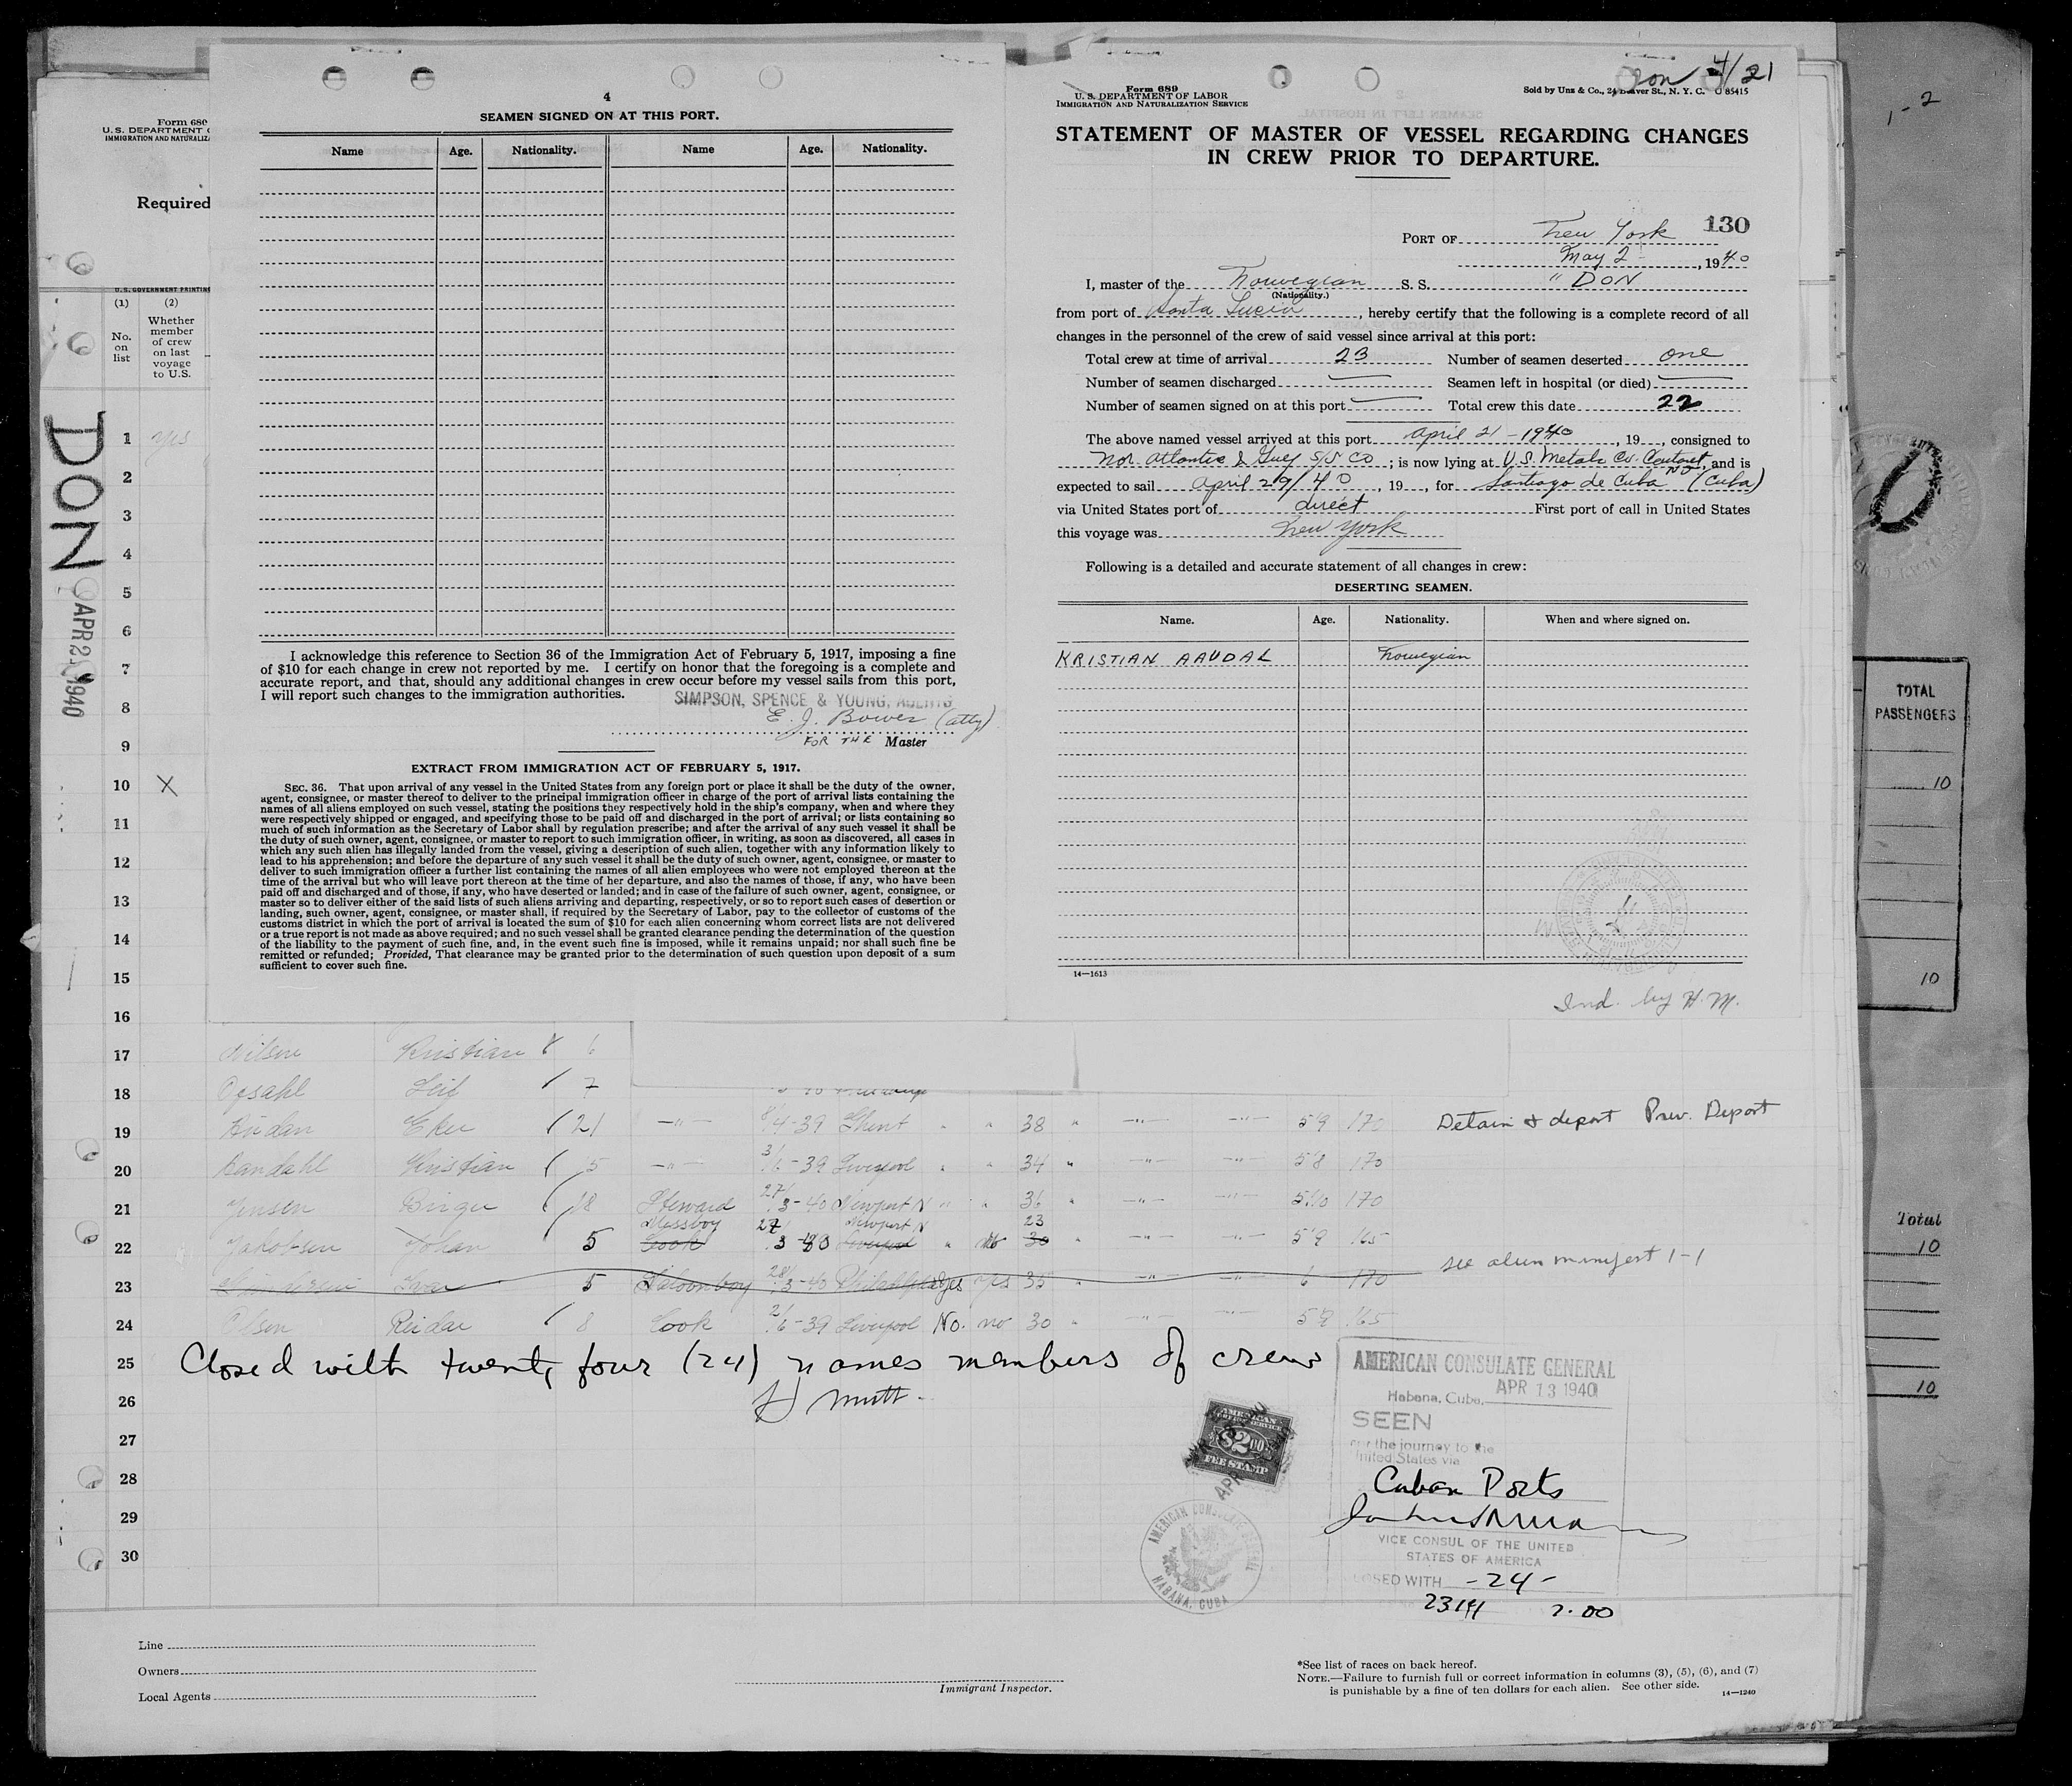 Form 689
U. S. DEPARTMENT
IMMIGRATION AND NATURALIZ
Required
U. S. GOVERNMENT PRINTING
(1) (2)
No. on list
Whether member of crew on last voyage to U.S.
DON
APR 21 1940
1 yes
2
3
4
5
6
7
8
9
10 X
11
12
13
14
15
16
4
SEAMEN SIGNED ON AT THIS PORT.
Name Age. Nationality. Name Age. Nationality.
I acknowledge this reference to Section 36 of the Immigration Act of February 5, 1917, imposing a fine
of $10 for each change in crew not reported by me. I certify on honor that the foregoing is a complete and
accurate report, and that, should any additional changes in crew occur before my vessel sails from this port,
I will report such changes to the immigration authorities.
SIMPSON, SPENCE & YOUNG, AGENTS
E. J. Bower (atty)
FOR THE Master
EXTRACT FROM IMMIGRATION ACT OF FEBRUARY 5, 1917.
SEC. 36. That upon arrival of any vessel in the United States from any foreign port or place it shall be the duty of the owner,
agent, consignee, or master thereof to deliver to the principal immigration officer in charge of the port of arrival lists containing the
names of all aliens employed on such vessel, stating the positions they respectively hold in the ship's company, when and where they
were respectively shipped or engaged, and specifying those to be paid off and discharged in the port of arrival; or lists containing so
much of such information as the Secretary of Labor shall by regulation prescribe; and after the arrival of any such vessel it shall be
the duty of such owner, agent, consignee, or master to report to such immigration officer, in writing, as soon as discovered, all cases in
which any such alien has illegally landed from the vessel, giving a description of such alien, together with any information likely to
lead to his apprehension; and before the departure of any such vessel it shall be the duty of such owner, agent, consignee, or master to
deliver to such immigration officer a further list containing the names of all alien employees who were not employed thereon at the
time of the arrival but who will leave port thereon at the time of her departure, and also the names of those, if any, who have been
paid off and discharged and of those, if any, who have deserted or landed; and in case of the failure of such owner, agent, consignee, or
master so to deliver either of the said lists of such aliens arriving and departing, respectively, or so to report such cases of desertion or
landing, such owner, agent, consignee, or master shall, if required by the Secretary of Labor, pay to the collector of customs of the
customs district in which the port of arrival is located the sum of $10 for each alien concerning whom correct lists are not delivered
or a true report is not made as above required; and no such vessel shall be granted clearance pending the determination of the question
of the liability to the payment of such fine, and, in the event such fine is imposed, while it remains unpaid; nor shall such fine be
remitted or refunded; Provided, That clearance may be granted prior to the determination of such question upon deposit of a sum
sufficient to cover such fine.
Form 689
U. S. DEPARTMENT OF LABOR
IMMIGRATION AND NATURALIZATION SERVICE
4/21
Sold by Unz & Co., 24 Beaver St., N. Y. C. O 85415
STATEMENT OF MASTER OF VESSEL REGARDING CHANGES
IN CREW PRIOR TO DEPARTURE.
130
PORT OF New York
May 2 , 1940
I, master of the Norwegian S. S. " DON
(Nationality.)
from port of Santa Lucia , hereby certify that the following is a complete record of all
changes in the personnel of the crew of said vessel since arrival at this port:
Total crew at time of arrival 23 Number of seamen deserted one
Number of seamen discharged Seamen left in hospital (or died)
Number of seamen signed on at this port Total crew this date 22
The above named vessel arrived at this port April 21 - 1940 , 19 , consigned to
Nor. Atlantic & Gulf S/S Co ; is now lying at U. S. Metals Co. , and is
expected to sail April 29/40 , 19 , for Santiago de Cuba (Cuba)
via United States port of direct First port of call in United States
this voyage was New York
Following is a detailed and accurate statement of all changes in crew:
DESERTING SEAMEN.
Name. Age. Nationality. When and where signed on.
KRISTIAN AAUDAL Norwegian
14—1613
Ind. by H. M.
1 - 2
TOTAL PASSENGERS
10
10
Total
10
10
17 Nilsen Kristian 6
18 Opsahl Leif 7
19 21 8/4-39 Ghent 38 5'9 170 Detain & deport Prev. Deport
20 Kristian 15 3/6-39 Liverpool 34 5'8 170
21 Jensen Birger 18 Steward 27/3-40 Newport N 36 5'10 170
Messboy 27 Newport N 23
22 Jakobsen Johan 5 Cook 3-40 Liverpool No 30 5'9 165
see alien manifest 1-1
23 Ivar 5 Saloonboy 28/3-40 Philadelphia yes yes 35 6 170
24 Olsen Reidar 8 Cook 2/6-39 Liverpool No. no 30 5'8 165
25 Closed with twenty four (24) names members of crew
26
27
28
29
30
AMERICAN FOREIGN SERVICE
$2.00
FEE STAMP
AMERICAN CONSULATE GENERAL
HABANA, CUBA
AMERICAN CONSULATE GENERAL
APR 13 1940
Habana, Cuba,
SEEN
for the journey to the
United States via
Cuban Ports
VICE CONSUL OF THE UNITED
STATES OF AMERICA
CLOSED WITH -24-
2.00
Line
Owners
Local Agents
Immigrant Inspector.
*See list of races on back hereof.
NOTE.—Failure to furnish full or correct information in columns (3), (5), (6), and (7)
is punishable by a fine of ten dollars for each alien. See other side.
14—1240